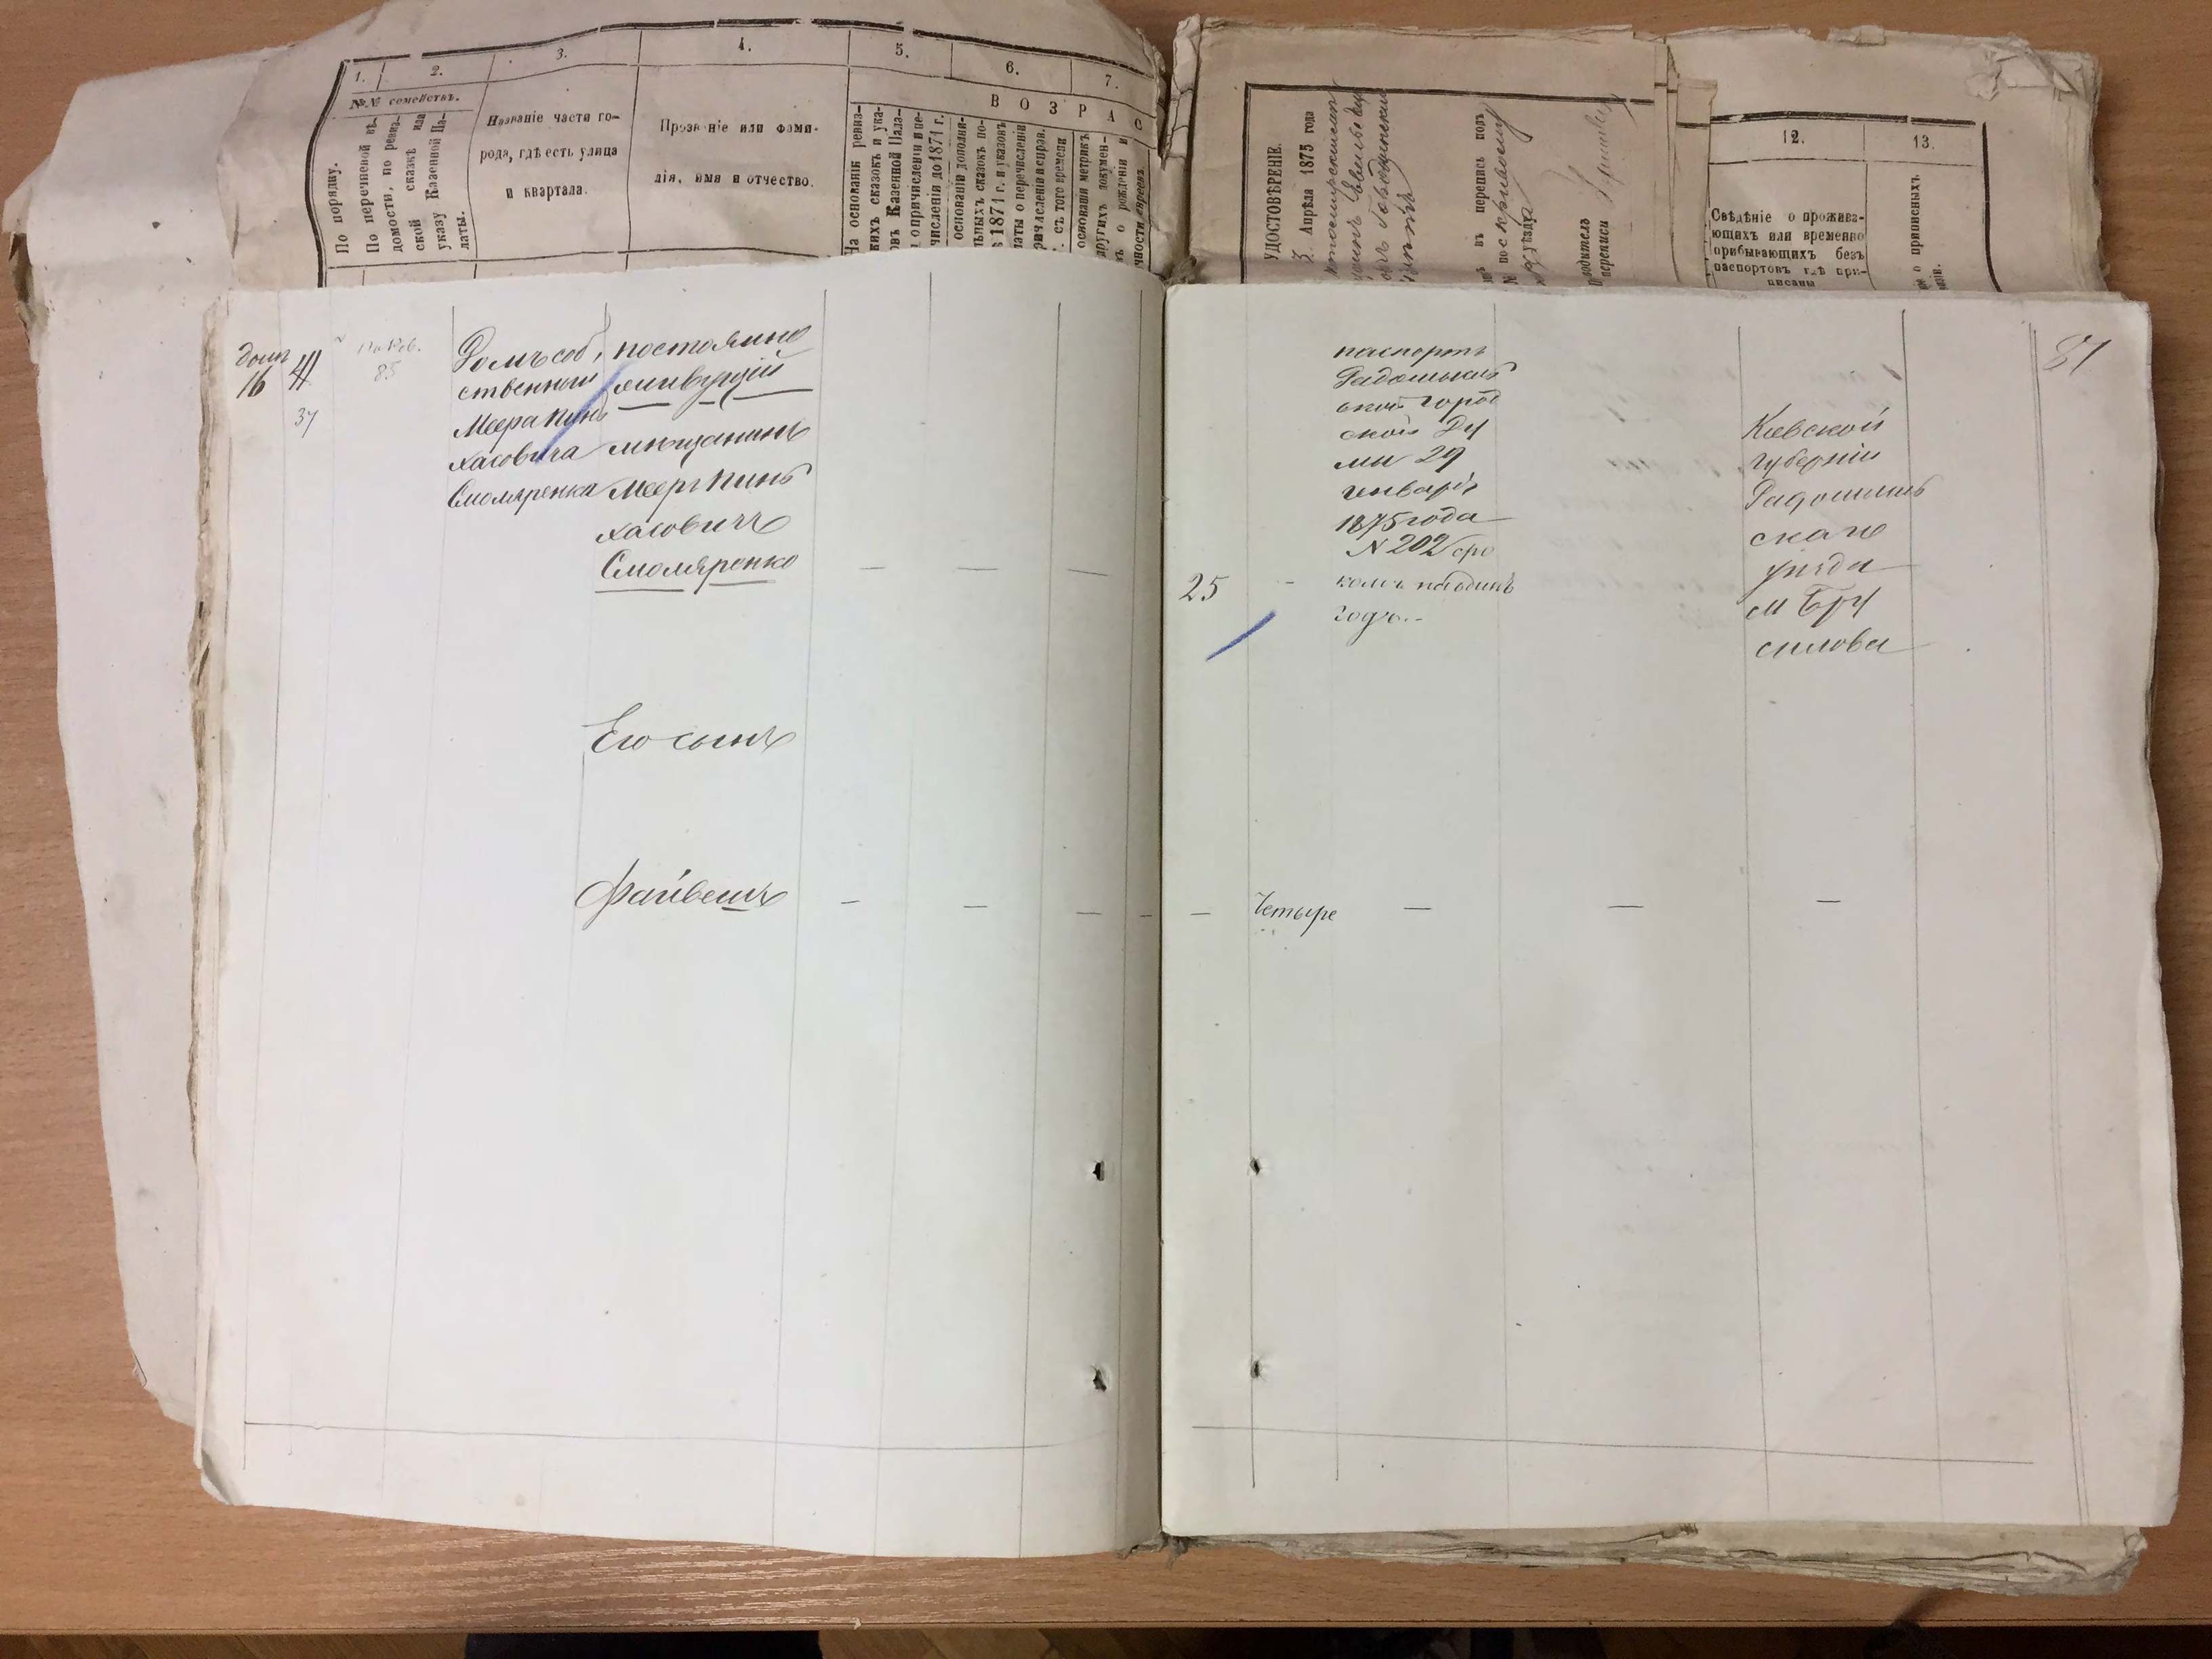 1.
2.
3.
4.
5.
6.
7.
№№ семействъ.
В О З Р А С
По порядку.
По перечневой вѣ-
домости, по ревиз-
ской сказкѣ или
указу Казенной Па-
латы.
Названіе части го-
рода, гдѣ есть улица
и квартала.
Прозваніе или фами-
лія, имя и отчество.
На основаніи ревиз-
кихъ сказокъ и ука-
овъ Казенной Пала-
о причисленіи и пе-
численіи до 1871 г.
основаніи дополни-
льныхъ сказокъ по-
1871 г. и указовъ
латы о перечисленіи
съ того времени
основаніи метрикъ
другихъ докумен-
о рожденіи и
УДОСТОВѢРЕНІЕ.
3 Апрѣля 1875 года
въ перепись подъ
№ по
уѣзда
водитель
переписи
12.
13.
Свѣдѣніе о прожива-
ющихъ или временно
прибывающихъ безъ
паспортовъ гдѣ при-
писаны
о приписныхъ
домъ
16
37
По Рев.
85
Домъ соб
ственный
Меера Пин
хасовича
Смоляренка
постоянно
живущій
мѣщанинъ
Мееръ Пинъ
хасовичъ
Смоляренко
Его сынъ
Файвешъ
25
паспортъ
Радомысль
ской город
ской Ду
мы 29
генваря
1875 года
N 202 сро
комъ на одинъ
годъ.
Кіевской
губерніи
Радомысль
скаго
уѣзда
м Бру
силова
87
Четыре